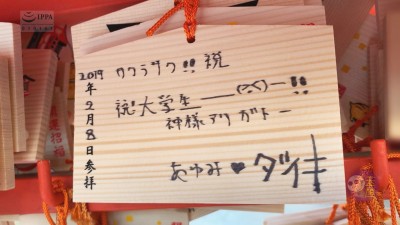 IPPA
サクラサク!! 祝
祝!大学生――(^^)ー!!
神様アリガトー
あゆみ♥ダイキ
2019年2月8日参拝